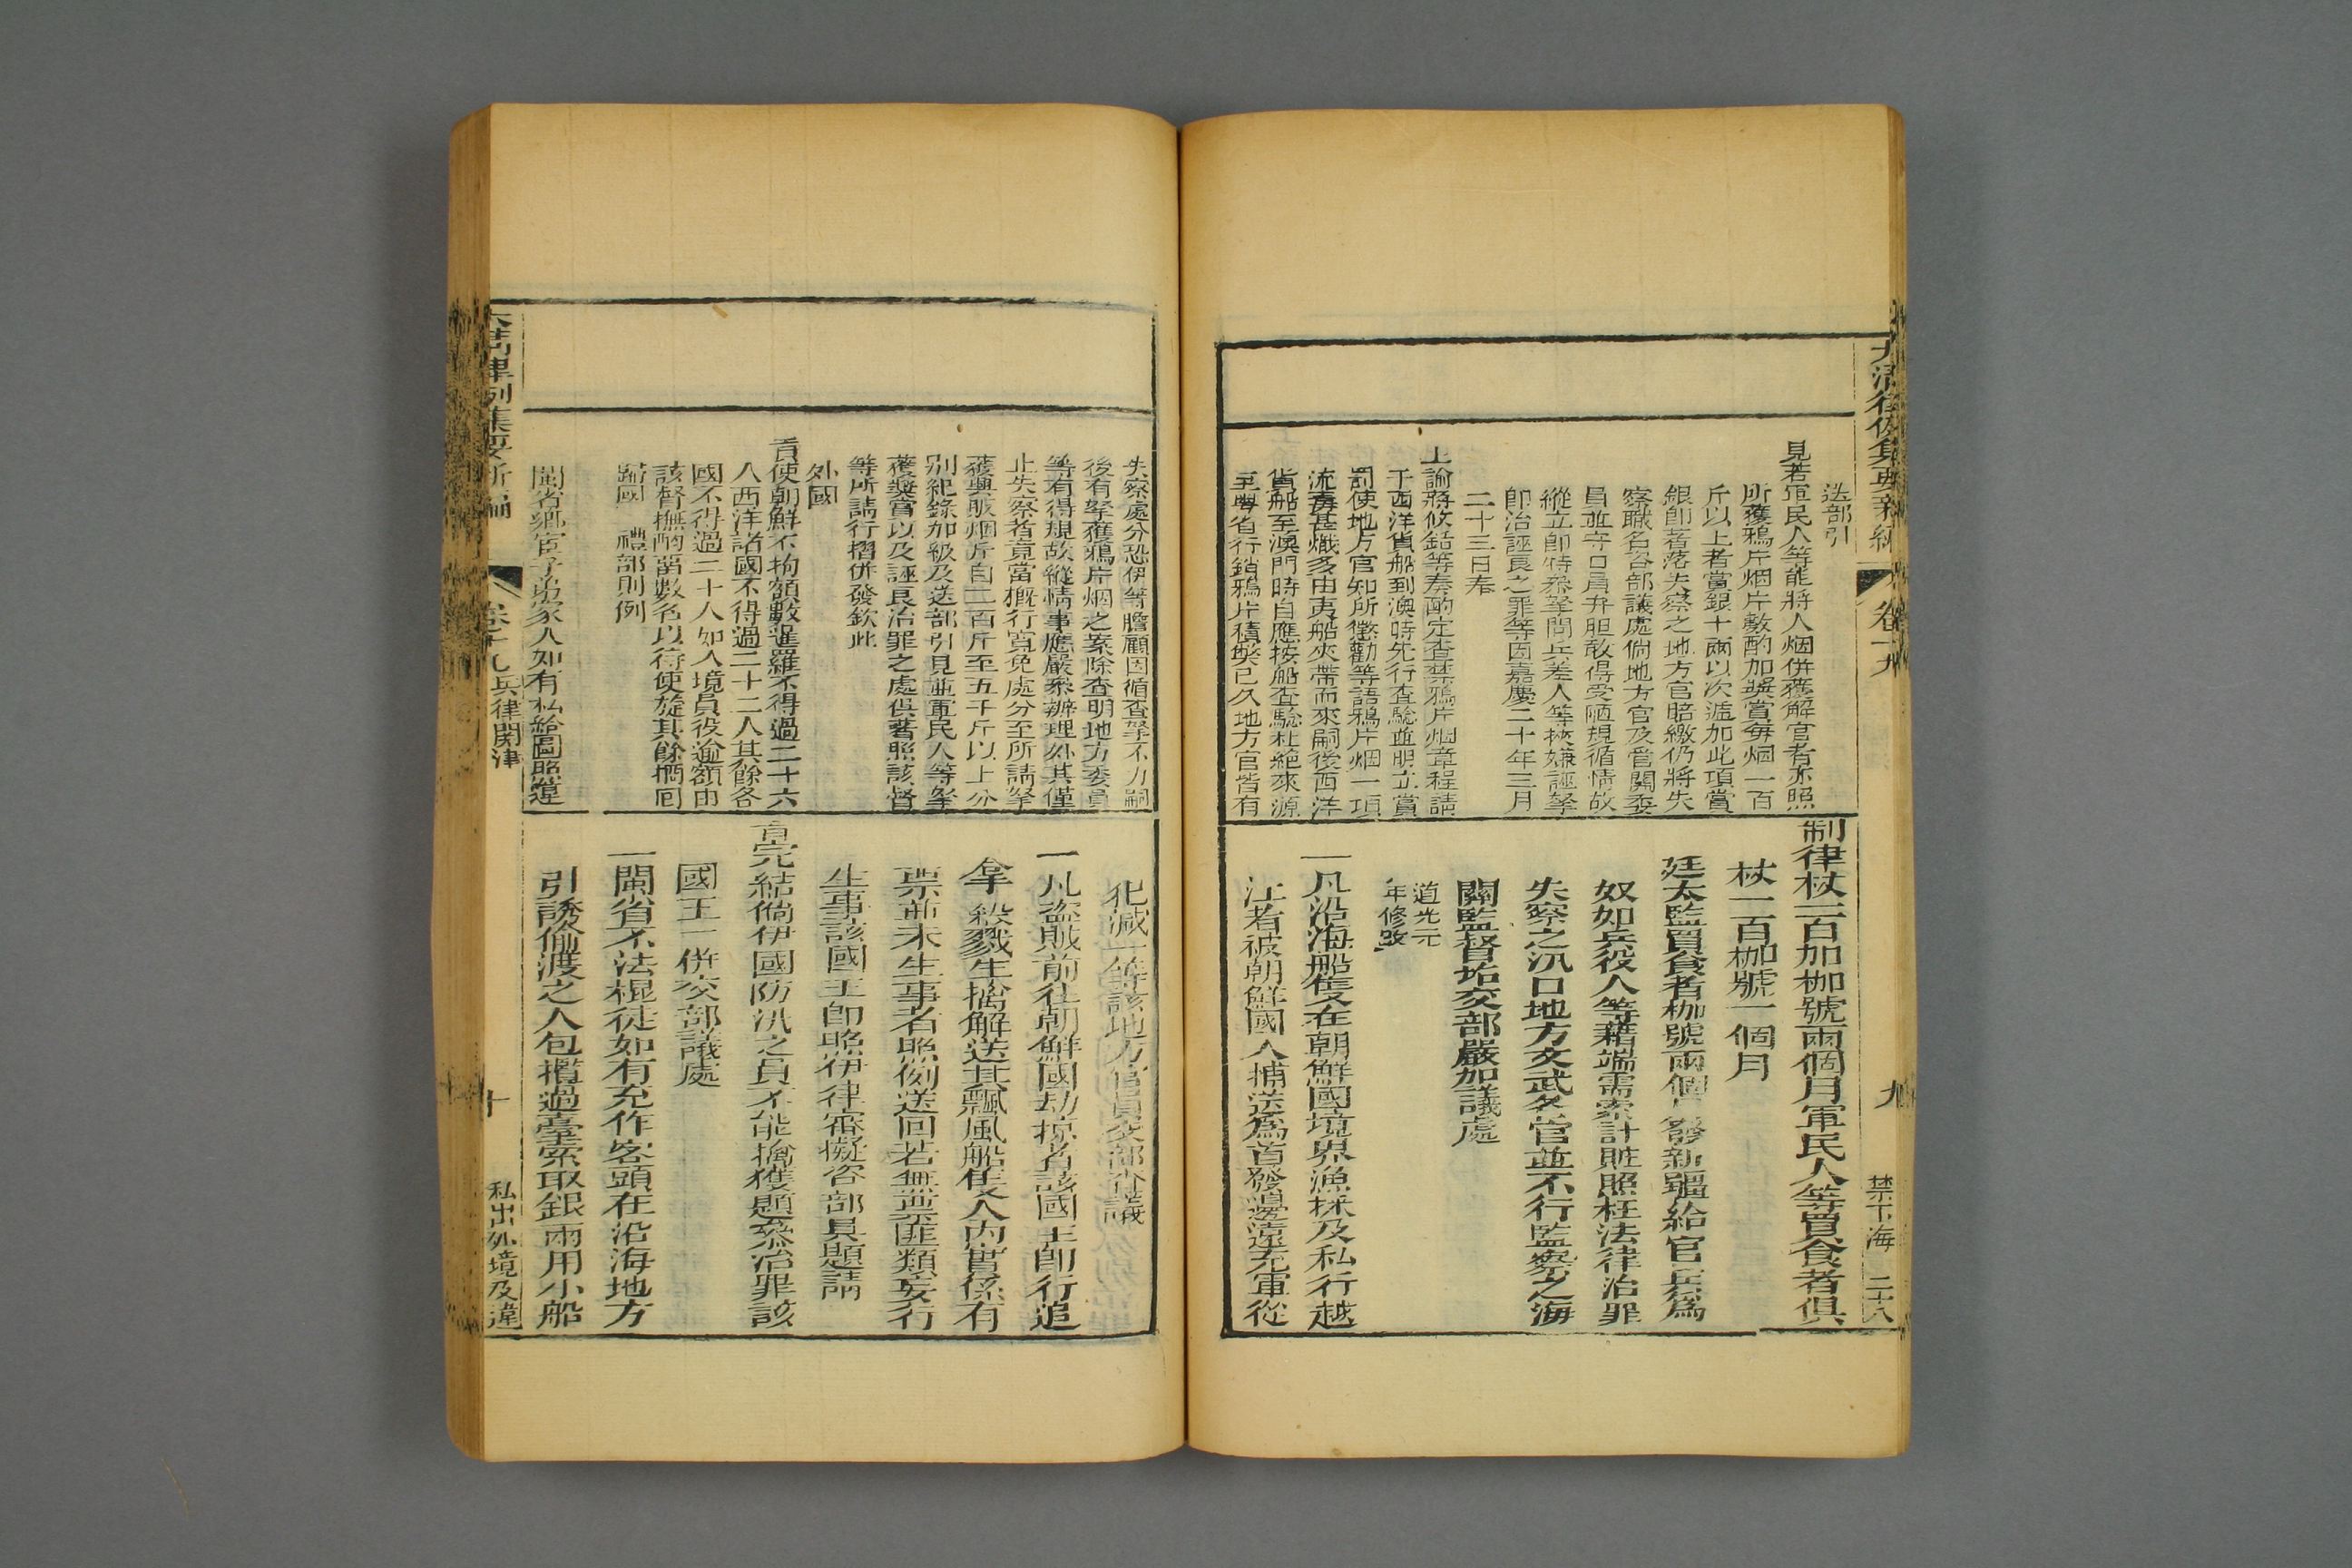 大清律例集要新編
卷十九
九
禁下海
二十八
法部引
見若軍民人等能將人烟併獲解官者亦照
所獲鴉片烟片數酌加獎賞每烟一百
斤以上者當銀十兩以次遞加此項賞
銀即著落失察之地方官賠繳仍將失
察職名咨部議處倘地方官及管關委
員並守口員弁胆敢得受陋規循情故
縱立即特叅拏問兵差人等挾嫌誣拏
即治誣良之罪等因嘉慶二十年三月
二十三日奉
上諭蔣攸銛等奏酌定查禁鴉片烟章程請
于西洋貨船到澳時先行查驗並明立賞
罰使地方官知所懲勸等語鴉片烟一項
流毒甚熾多由夷船夾帶而來嗣後西洋
貨船至澳門時自應按船查驗杜絕來源
至粵省行銷鴉片積弊已久地方官皆有
制律杖一百加枷號兩個月軍民人等買食者俱
杖一百枷號一個月
廷太監買食者枷號兩個月發新疆給官兵爲
奴如兵役人等藉端需索計贓照枉法律治罪
失察之汛口地方文武各官並不行監察之海
關監督均交部嚴加議處
道光元
年修改
一凡沿海船隻在朝鮮國境界漁採及私行越
江者被朝鮮國人捕送爲首發邊遠充軍從
失察處分恐伊等瞻顧因循查拏不力嗣
後有拏獲鴉片烟之案除查明地方委員
等有得規故縱情事應嚴叅辦理外其僅
止失察者竟當概行寬免處分至所請拏
獲興販烟斤自二百斤至五千斤以上分
別紀錄加級及送部引見並軍民人等拏
獲獎賞以及誣良治罪之處俱著照該督
等所請行摺併發欽此
外國
貢使朝鮮不拘額數暹羅不得過二十六
人西洋諸國不得過二十二人其餘各
國不得過二十人如入境員役逾額由
該督撫酌留數名以待使旋其餘概回
歸國　禮部則例
閩省鄉官子弟家人如有私給圖照違
犯減一等該地方官員交部查議
一凡盜賊前往朝鮮國刼掠者該國王即行追
拿殺戮生擒解送其飄風船隻人內實係有
票並未生事者照例送回若無並票匪類妄行
生事該國王即照伊律審擬咨部具題請
旨完結倘伊國防汛之員不能擒獲題叅治罪該
國王一併交部議處
一閩省不法棍徒如有充作客頭在沿海地方
引誘偷渡之人包攬過臺索取銀兩用小船
大清律例集要新編
卷十九
兵律關津
十
私出外境及違